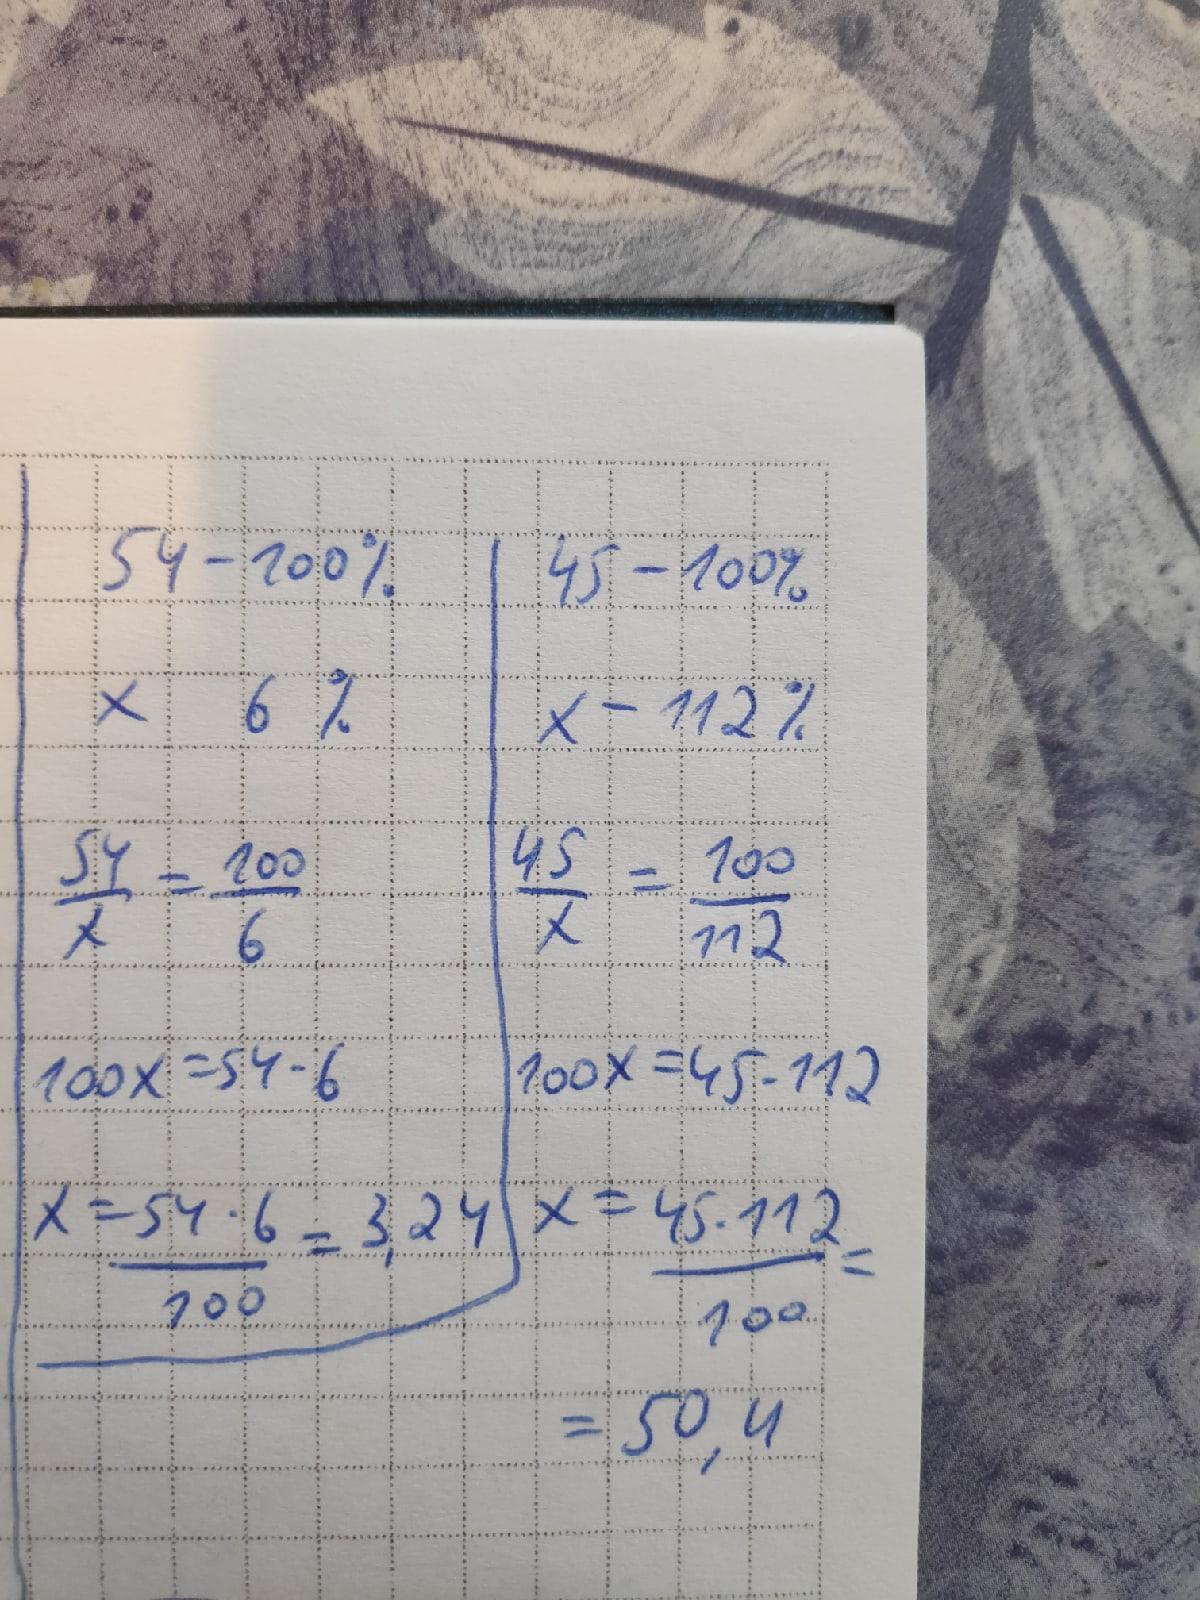 54 - 100%
x 6 %
54/x = 100/6
100x = 54 · 6
x = 54 · 6 / 100 = 3,24
45 - 100%
x - 112%
45/x = 100/112
100x = 45 · 112
x = 45 · 112 / 100 =
= 50,4